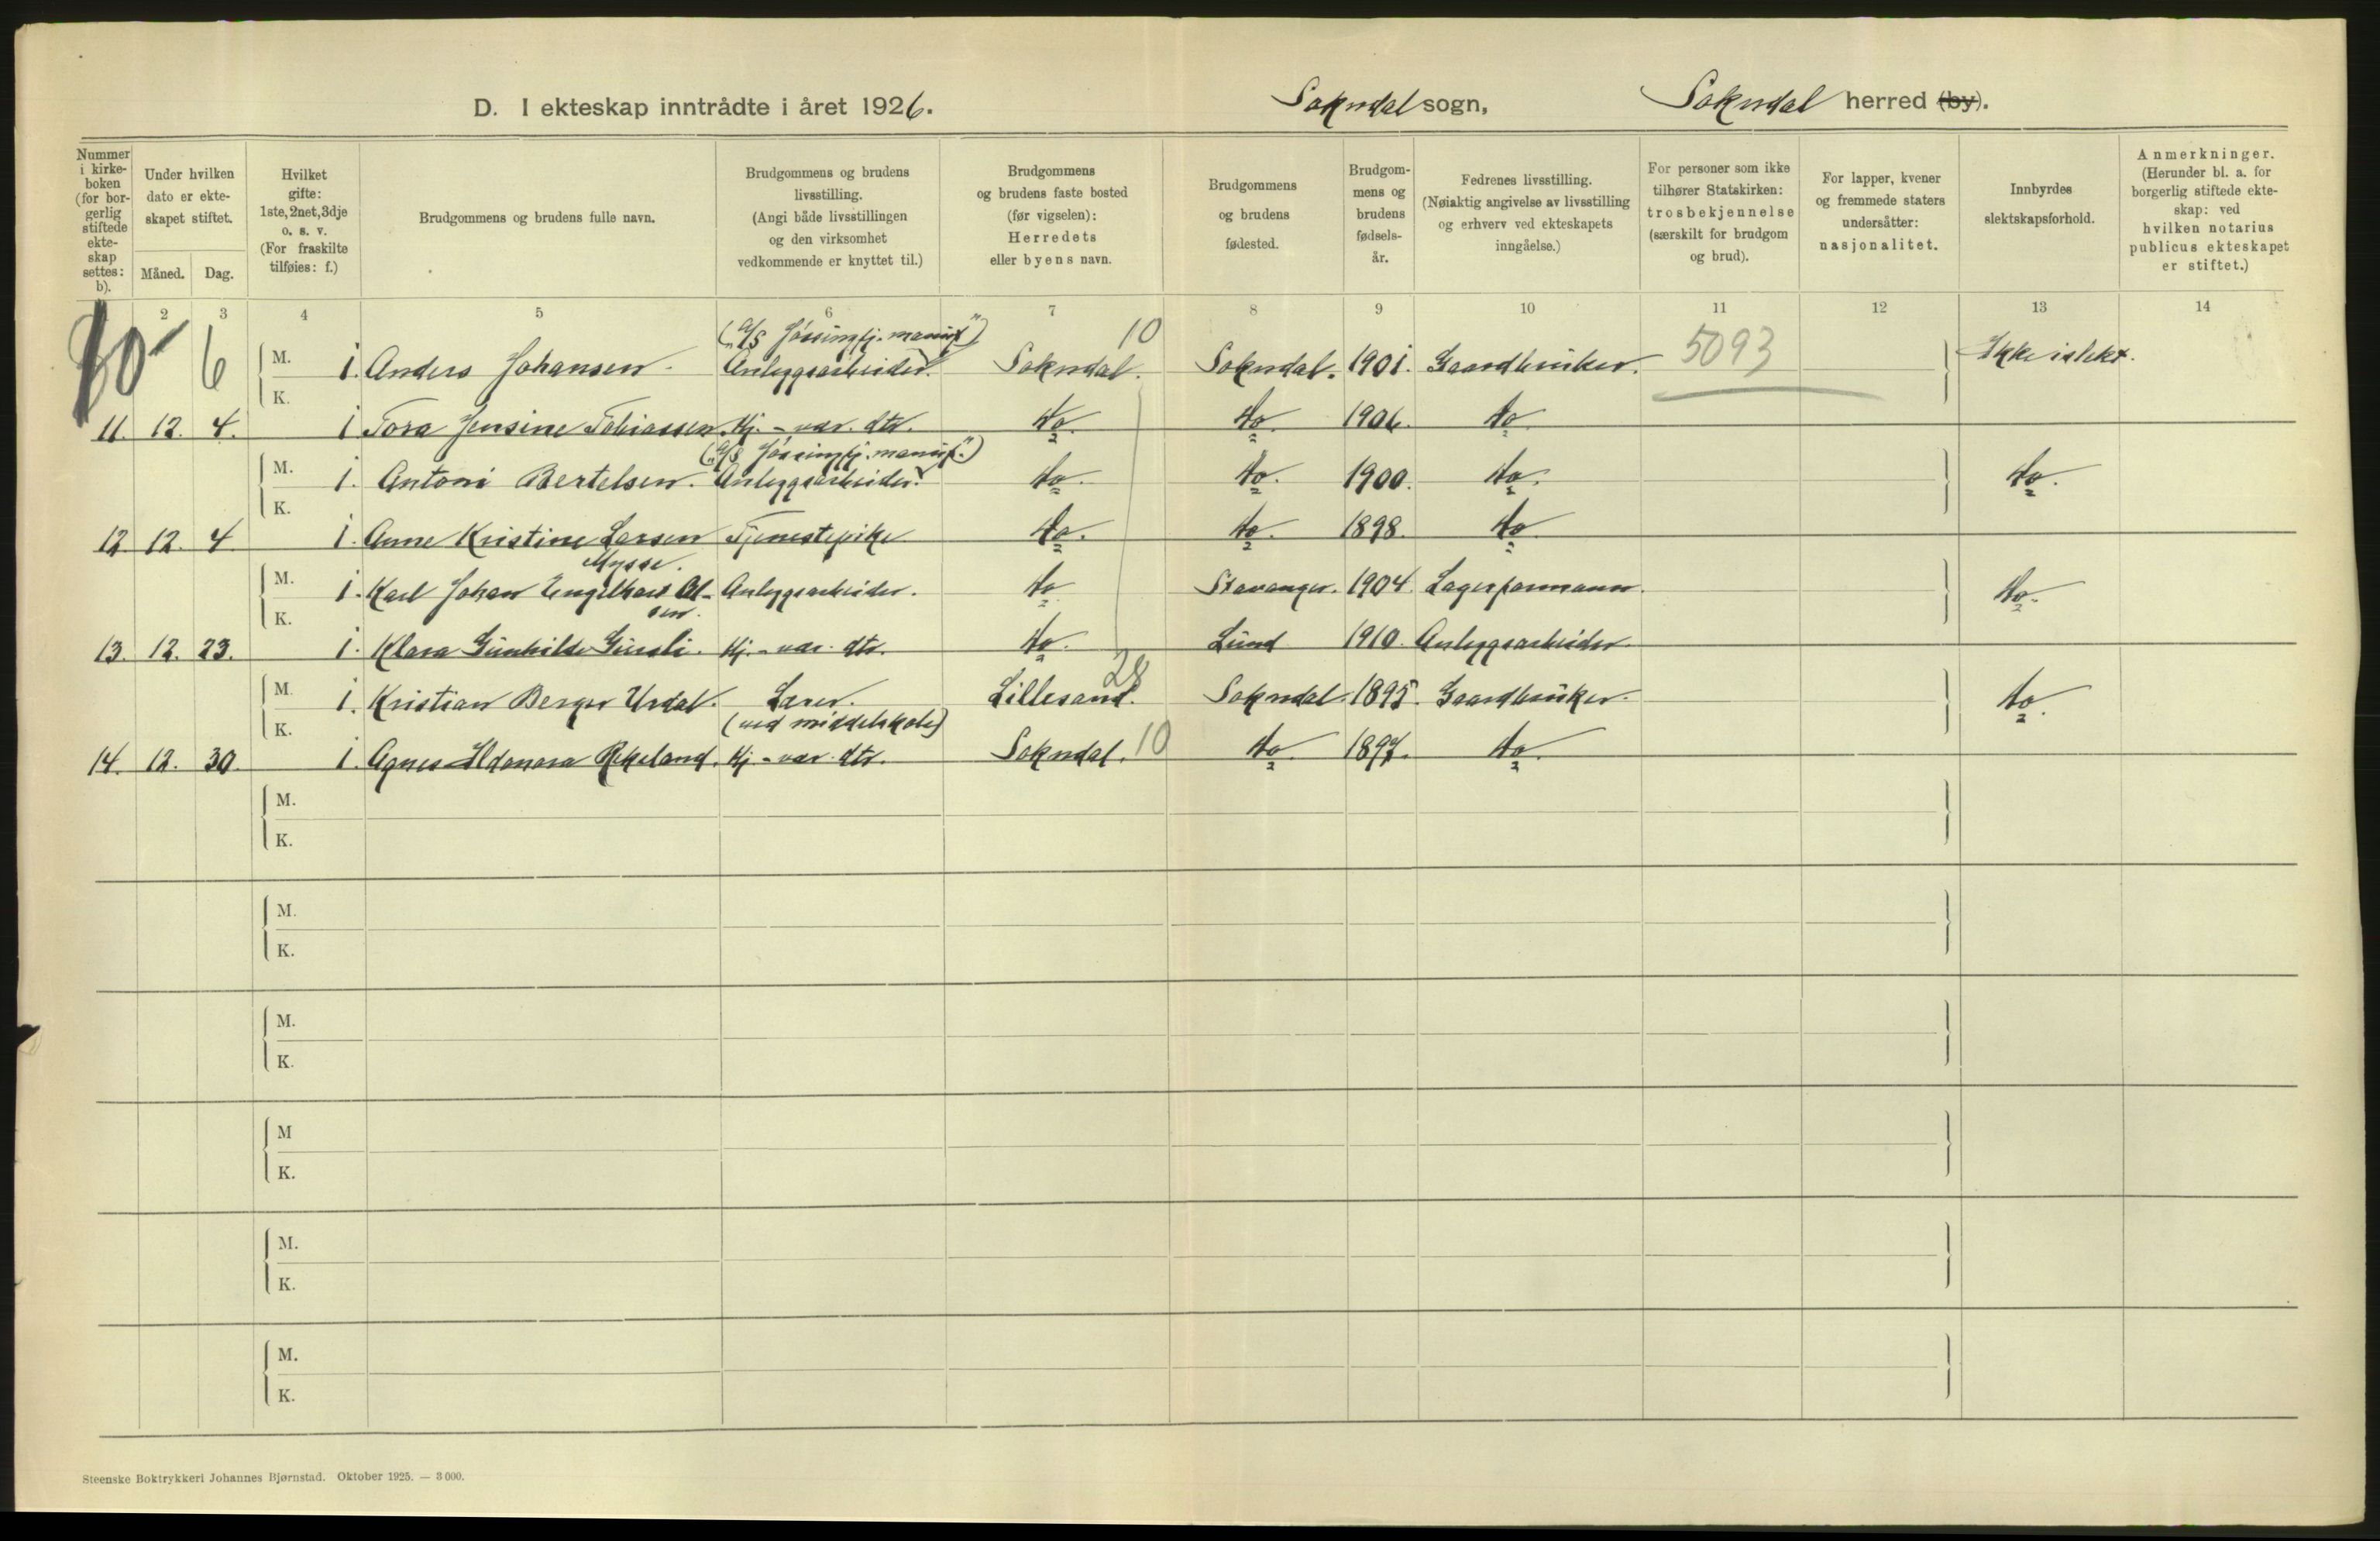 D. I ekteskap inntrådte i året 1926. Sokndal sogn, Sokndal herred (by).
Nummer i kirke-boken (for bor-gerlig stiftede ekte-skap settes: b).
Under hvilken dato er ekte-skapet stiftet.
Måned. Dag.
Hvilket gifte: 1ste, 2net, 3dje o. s. v. (For fraskilte tilføies: f.)
Brudgommens og brudens fulle navn.
Brudgommens og brudens livsstilling. (Angi både livsstillingen og den virksomhet vedkommende er knyttet til.)
Brudgommens og brudens faste bosted (før vigselen): Herredets eller byens navn.
Brudgommens og brudens fødested.
Brudgom-mens og brudens fødsels-år.
Fedrenes livsstilling. (Nøiaktig angivelse av livsstilling og erhverv ved ekteskapets inngåelse.)
For personer som ikke tilhører Statskirken: trosbekjennelse (særskilt for brudgom og brud).
For lapper, kvener og fremmede staters undersåtter: nasjonalitet.
Innbyrdes slektskapsforhold.
Anmerkninger. (Herunder bl. a. for borgerlig stiftede ekte-skap: ved hvilken notarius publicus ekteskapet er stiftet.)
2 3 4 5 6 7 8 9 10 11 12 13 14
6 (A/S Jøssingfj. manuf.") 10
M. 1. Anders Johansen. Anleggsarbeider. Sokndal. Sokndal. 1901. Gaardbruker. 5093 Ikke i slekt.
K.
11. 12. 4. 1 Tora Jensine Tobiassen. Hj.-vær. dtr. do. do. 1906. do.
("A/S Jøssingfj. manuf.")
M. 1. Antoni Bertelsen. Anleggsarbeider. do. do. 1900. do. do.
K.
12 12. 4. 1. Anne Kristine Larsen Tjenestepike do. do. 1898. do.
Mysse.
M. 1. Karl Johan Engelhart Ol- Anleggsarbeider. do Stavanger. 1904. Lagerformann. do.
K. sen.
13. 12. 23. 1. Klara Gunhilde Gursli. Hj.-vær. dtr. do. Lund 1910. Anleggsarbeider.
28
M. 1. Kristian Berger Urdal. Lærer. Lillesand. Sokndal. 1895. Gaardbruker. do.
K. (ved middelskole)
14. 12. 30. 1. Agnes Rekeland. Hj.-vær. dtr. Sokndal. 10 do. 1897. do.
M.
K.
M.
K.
M.
K.
M
K.
M.
K.
M.
K.
Steenske Boktrykkeri Johannes Bjørnstad. Oktober 1925. — 3 000.